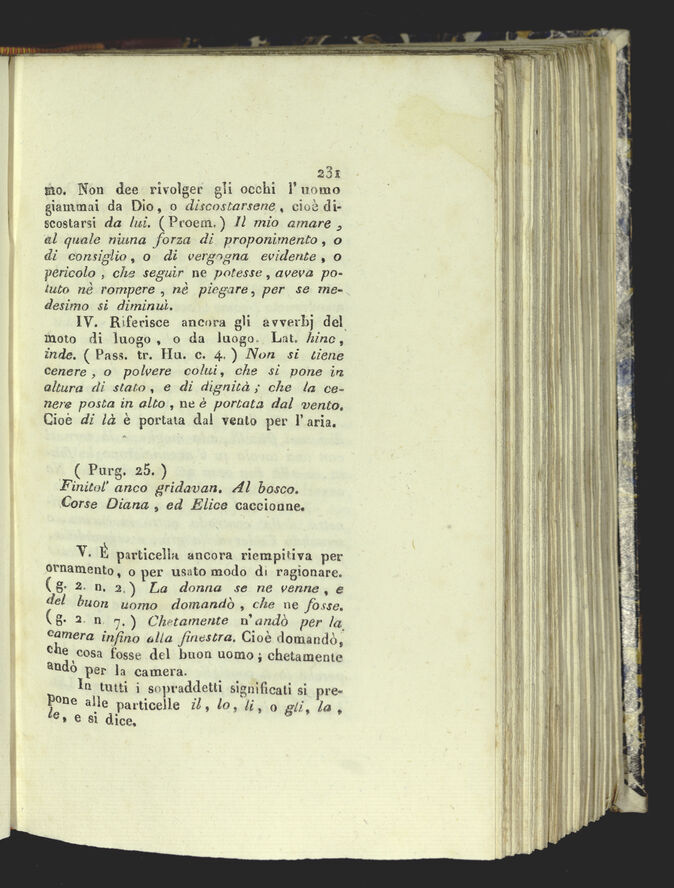 231
mo. Non dee rivolger gli occhi l'uomo
giammai da Dio, o discostarsene, cioè di-
scostarsi da lui. (Proem.) Il mio amare,
al quale niuna forza di proponimento, o
di consiglio, o di vergogna evidente, o
pericolo, che seguir ne potesse, aveva po-
tuto nè rompere, nè piegare, per se me-
desimo si diminuì.
IV. Riferisce ancora gli avverbj del
moto di luogo, o da luogo. Lat. hinc,
inde. (Pass. tr. Hu. c. 4.) Non si tiene
cenere, o polvere colui, che si pone in
altura di stato, e di dignità; che la ce-
nere posta in alto, ne è portata dal vento.
Cioè di là è portata dal vento per l'aria.
( Purg. 25. )
Finitol' anco gridavan. Al bosco.
Corse Diana, ed Elice caccionne.
V. È particella ancora riempitiva per
ornamento, o per usato modo di ragionare.
(g. 2. n. 2.) La donna se ne venne, e
del buon uomo domandò, che ne fosse.
(g. 2. n 7.) Chetamente n'andò per la
camera infino alla finestra. Cioè domandò,
che cosa fosse del buon uomo; chetamente
andò per la camera.
In tutti i sopraddetti significati si pre-
pone alle particelle il, lo, li, o gli, la,
le, e si dice.